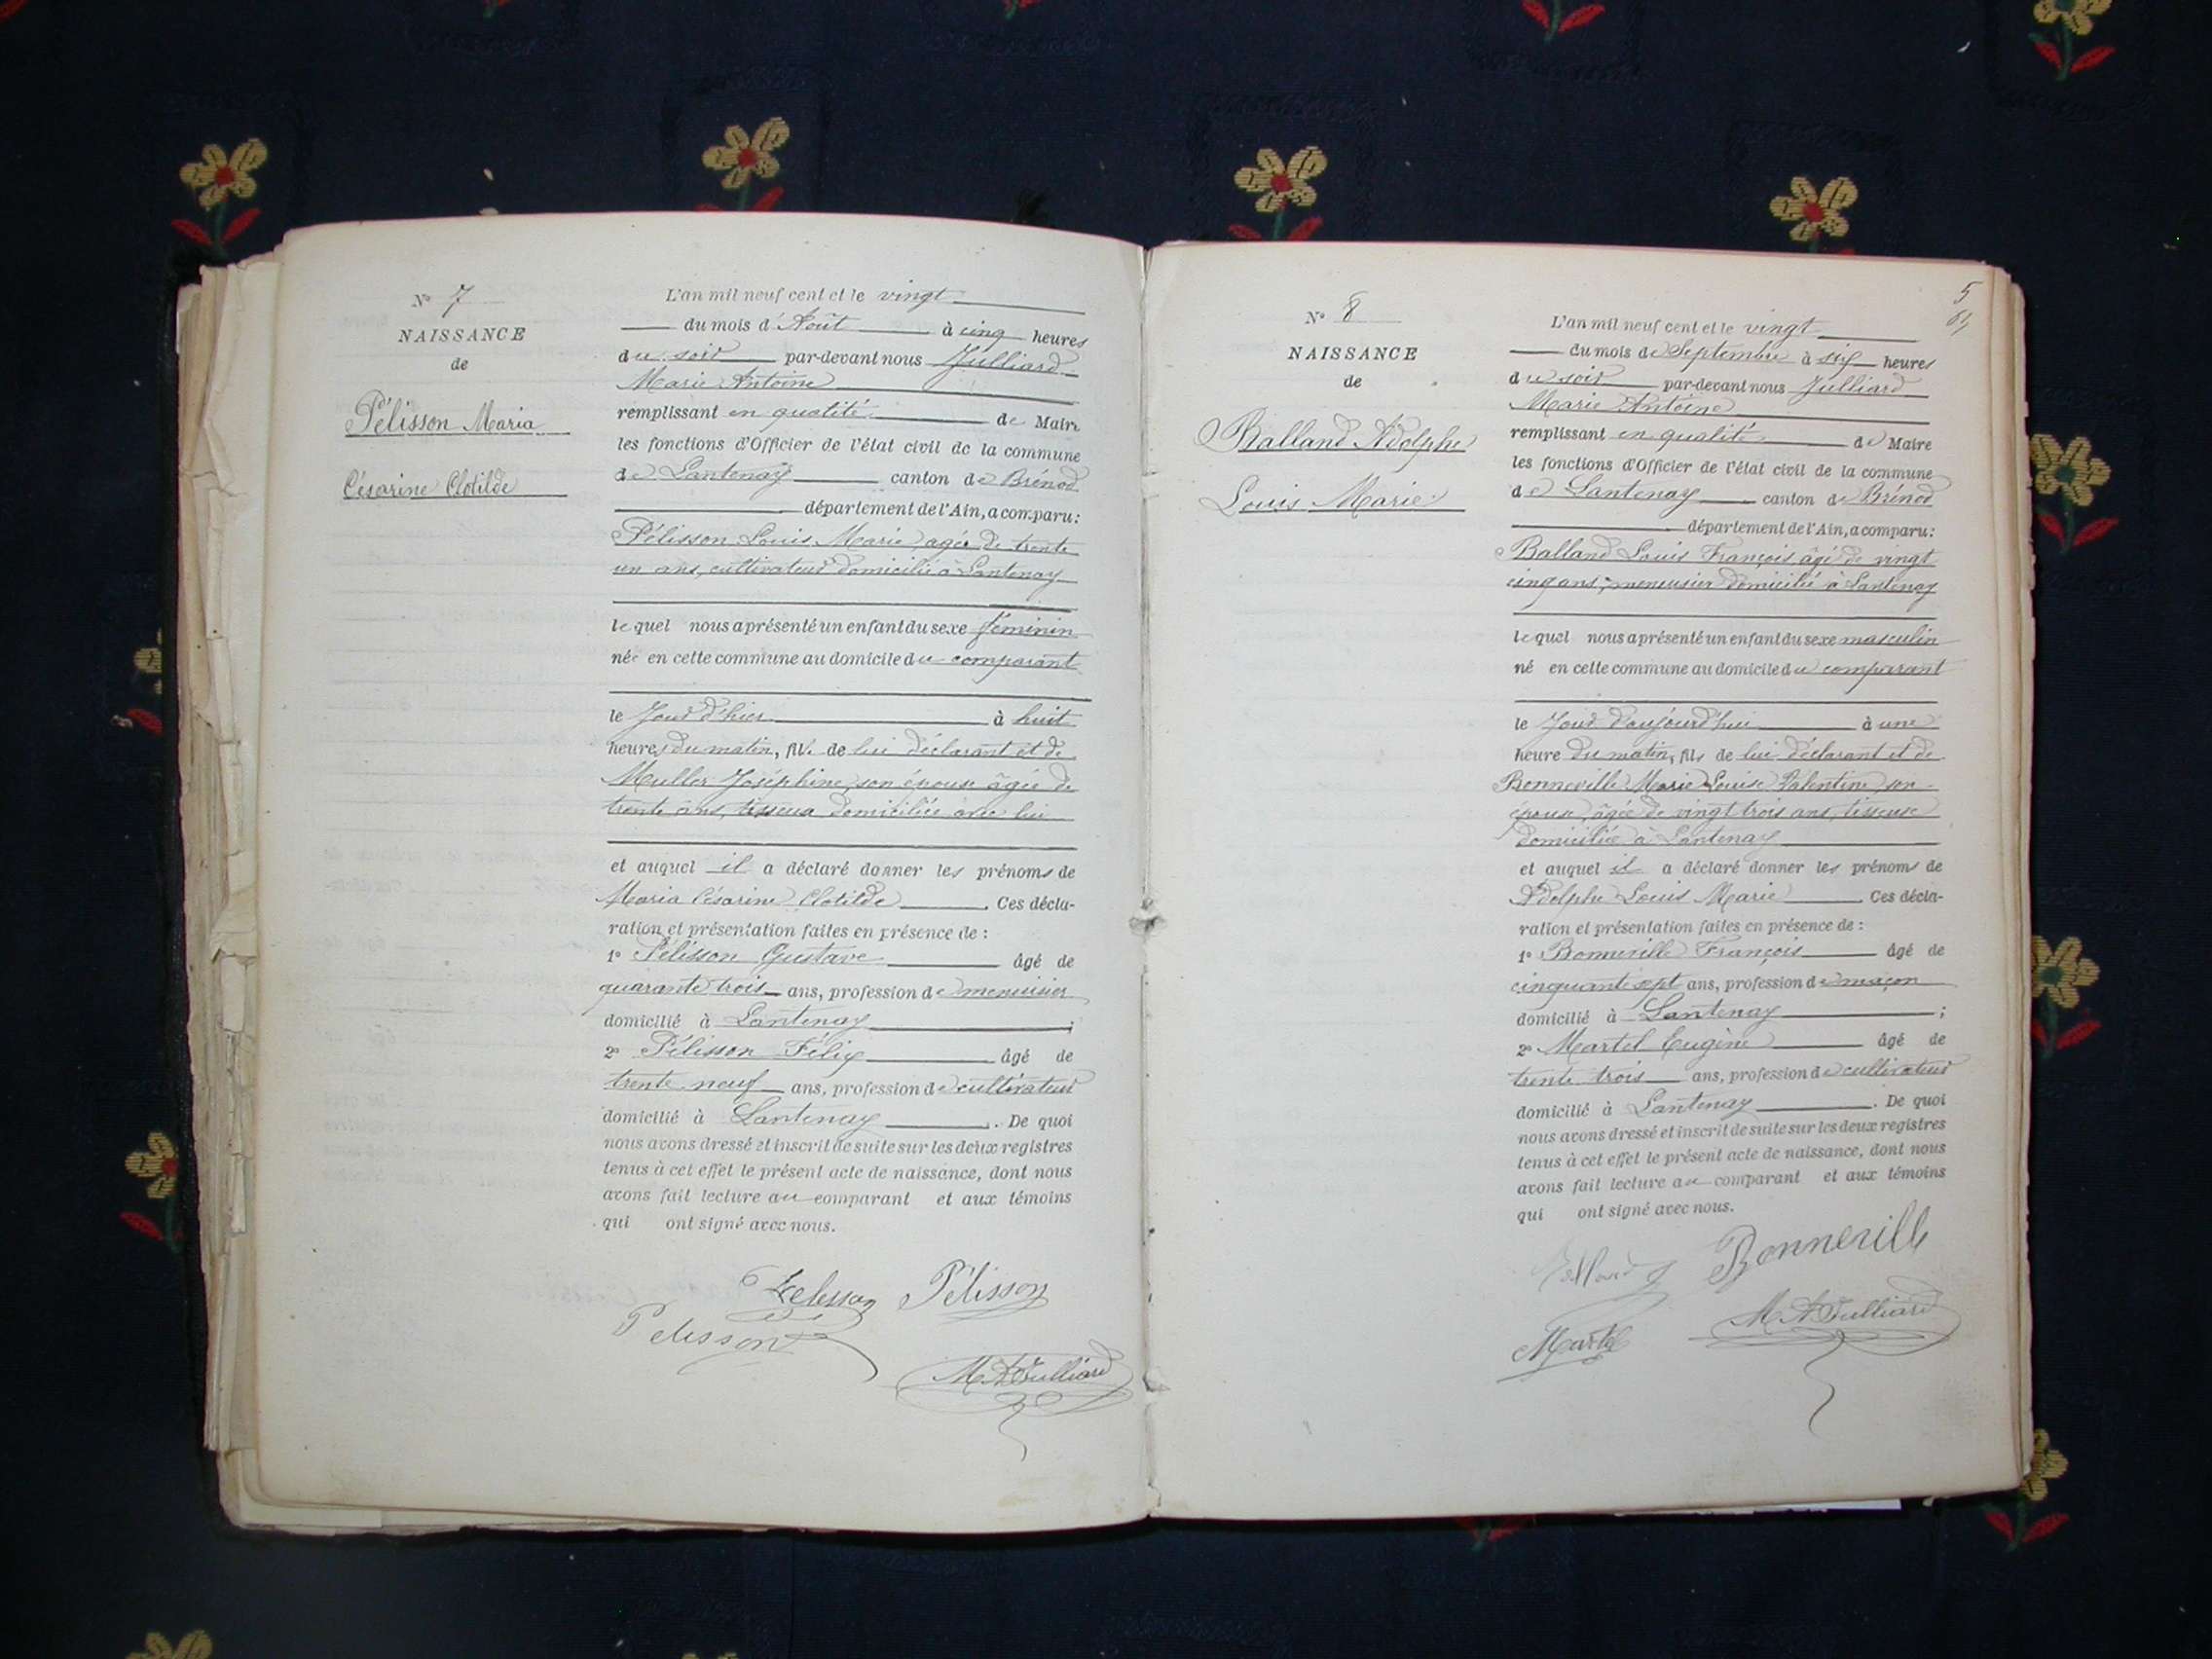 N° 7
NAISSANCE
de
Pélisson Maria
Césarine Clotilde
L'an mil neuf cent et le vingt
du mois d'Août à cinq heures
du soir par-devant nous Julliard
Marie Antoine
remplissant en qualité de Maire
les fonctions d'Officier de l'état civil de la commune
de Lantenay canton de Brénod
département de l'Ain, a comparu:
Pélisson Louis Marie, agé de trente
un ans, cultivateur domicilié à Lantenay
lequel nous a présenté un enfant du sexe féminin
née en cette commune au domicile du comparant
le Jour d'hier à huit
heures du matin, fille de lui déclarant et de
Muller Joséphine, son épouse âgée de
trente ans, domiciliée avec lui
et auquel il a déclaré donner les prénoms de
Maria Césarine Clotilde. Ces décla-
ration et présentation faites en présence de:
1° Pélisson Gustave âgé de
quarante trois ans, profession de menuisier
domicilié à Lantenay;
2° Pélisson Félix âgé de
trente neuf ans, profession de cultivateur
domicilié à Lantenay. De quoi
nous avons dressé et inscrit de suite sur les deux registres
tenus à cet effet le présent acte de naissance, dont nous
avons fait lecture au comparant et aux témoins
qui ont signé avec nous.
Pelisson Pélisson
Pelisson
M A Julliard
5
N° 8
NAISSANCE
de
Balland Adolphe
Louis Marie
L'an mil neuf cent et le vingt
du mois de Septembre à six heures
du soir par-devant nous Julliard
Marie Antoine
remplissant en qualité de Maire
les fonctions d'Officier de l'état civil de la commune
de Lantenay canton de Brénod
département de l'Ain, a comparu:
Balland Louis François âgé de vingt
cinq ans, menuisier domicilié à Lantenay
lequel nous a présenté un enfant du sexe masculin
né en cette commune au domicile du comparant
le Jour d'aujourd'hui à une
heure du matin, fils de lui déclarant et de
Bonneville Marie Louise Valentine son
épouse, âgée de vingt trois ans, tisseuse
domiciliée à Lantenay
et auquel il a déclaré donner les prénoms de
Adolphe Louis Marie Ces décla-
ration et présentation faites en présence de:
1° Bonneville François âgé de
cinquante sept ans, profession de maçon
domicilié à Lantenay;
2° Martel Eugène âgé de
trente trois ans, profession de cultivateur
domicilié à Lantenay. De quoi
nous avons dressé et inscrit de suite sur les deux registres
tenus à cet effet le présent acte de naissance, dont nous
avons fait lecture au comparant et aux témoins
qui ont signé avec nous.
Balland Bonneville
Martel M A Julliard